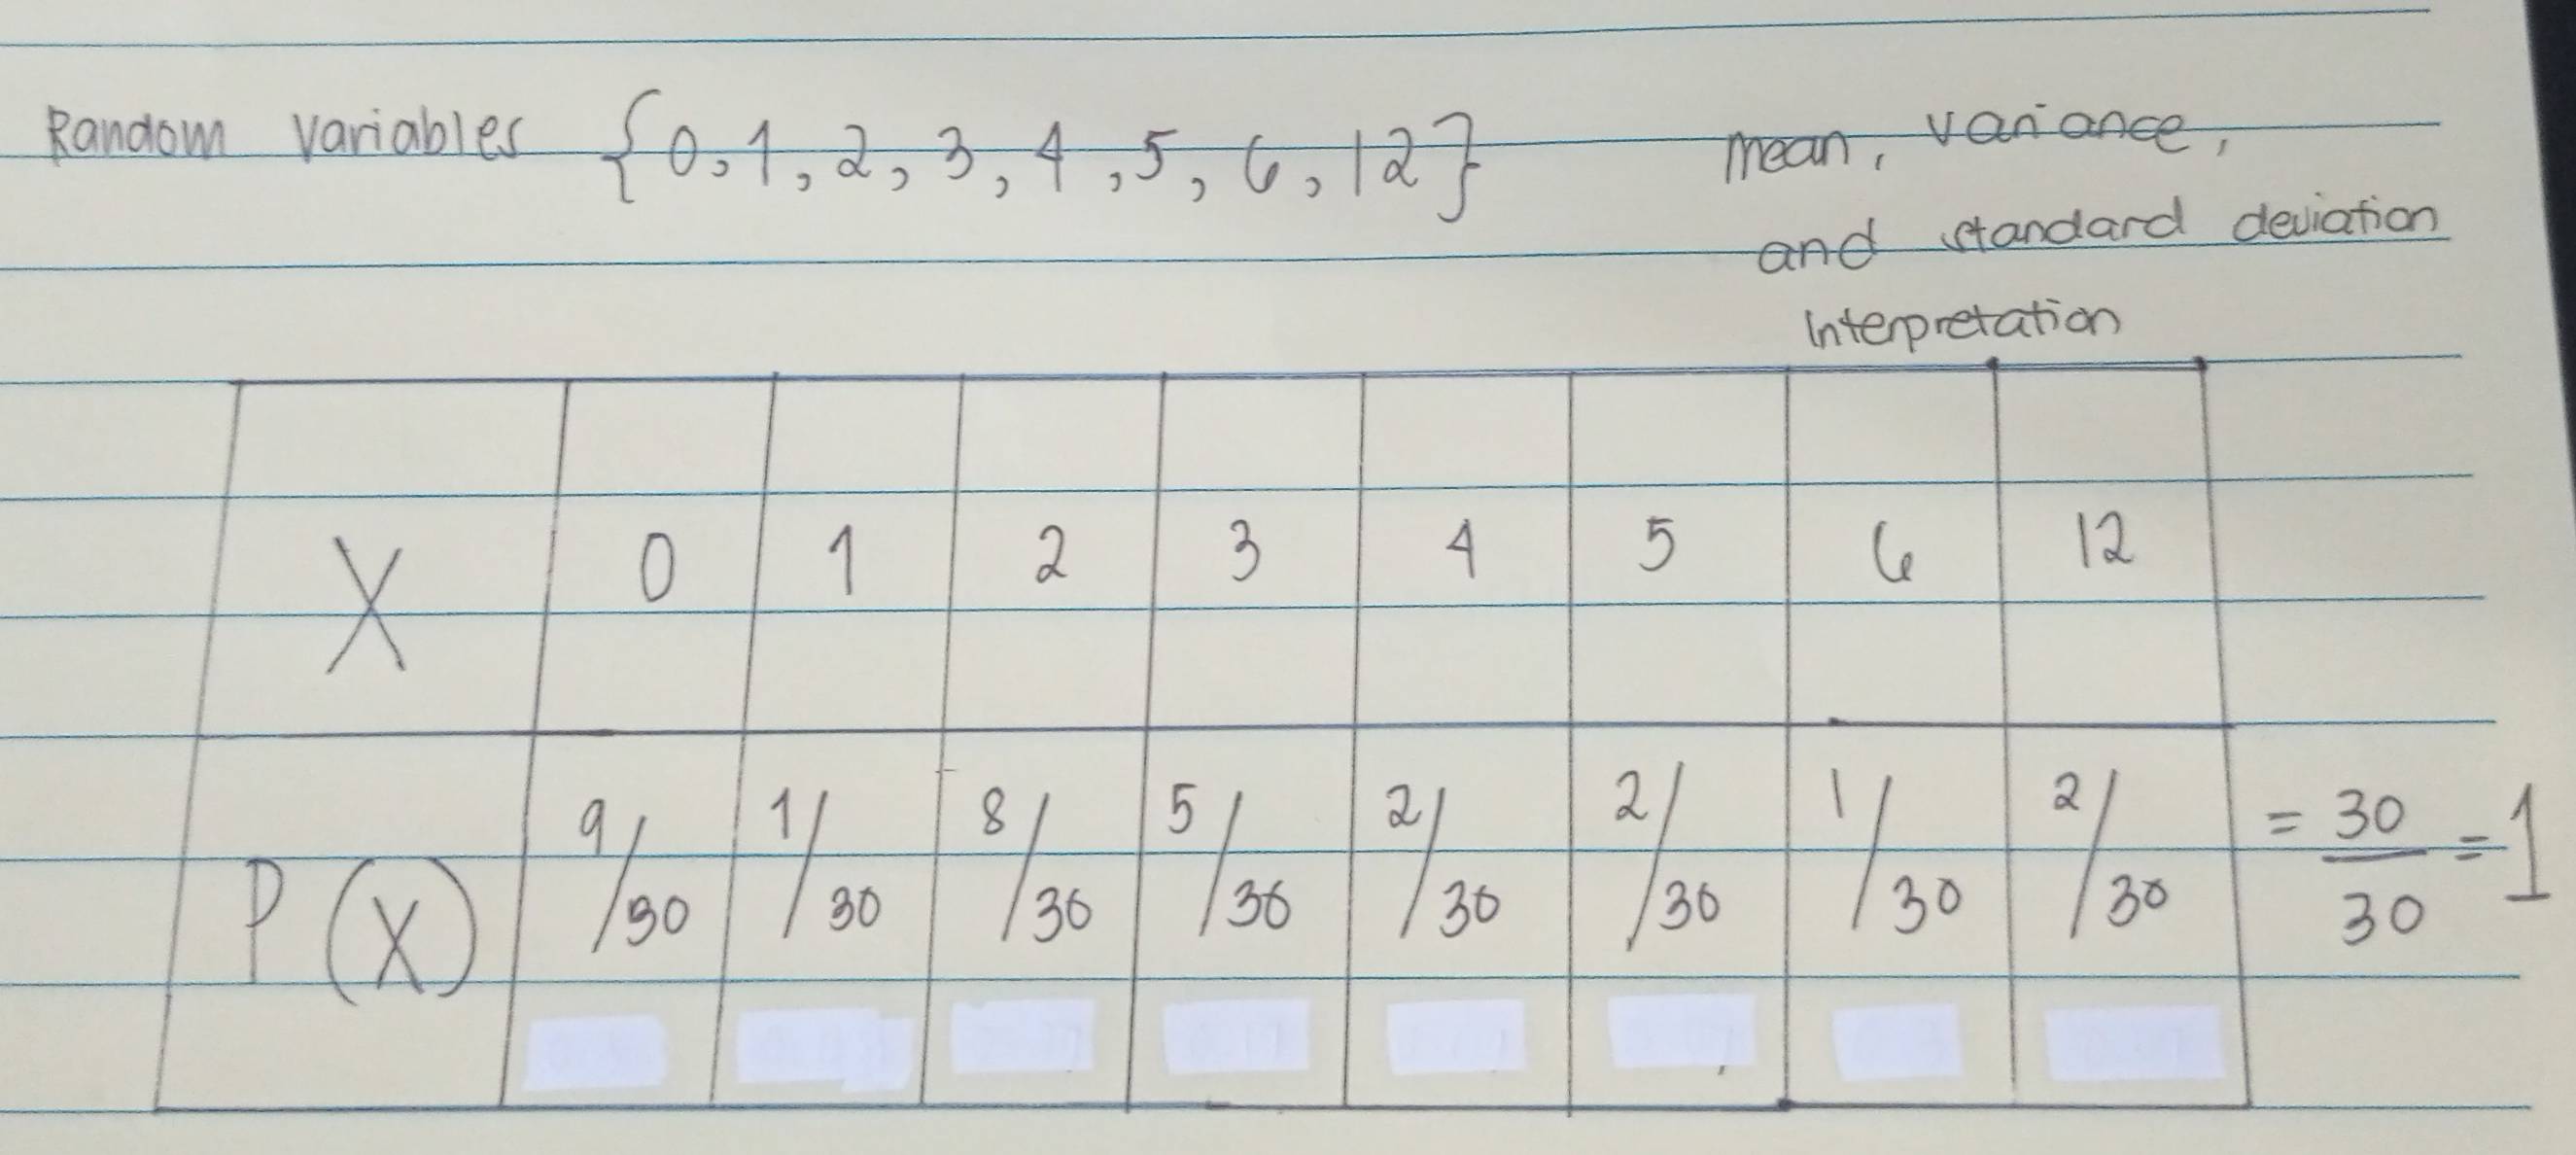 Random Variables {0,1,2,3,4,5,6,12}
mean, variance,
and standard deviation
Interpretation
X 0 1 2 3 4 5 6 12
P(X) 9/30 1/30 8/30 5/30 2/30 2/30 1/30 2/30 = 30/30 = 1